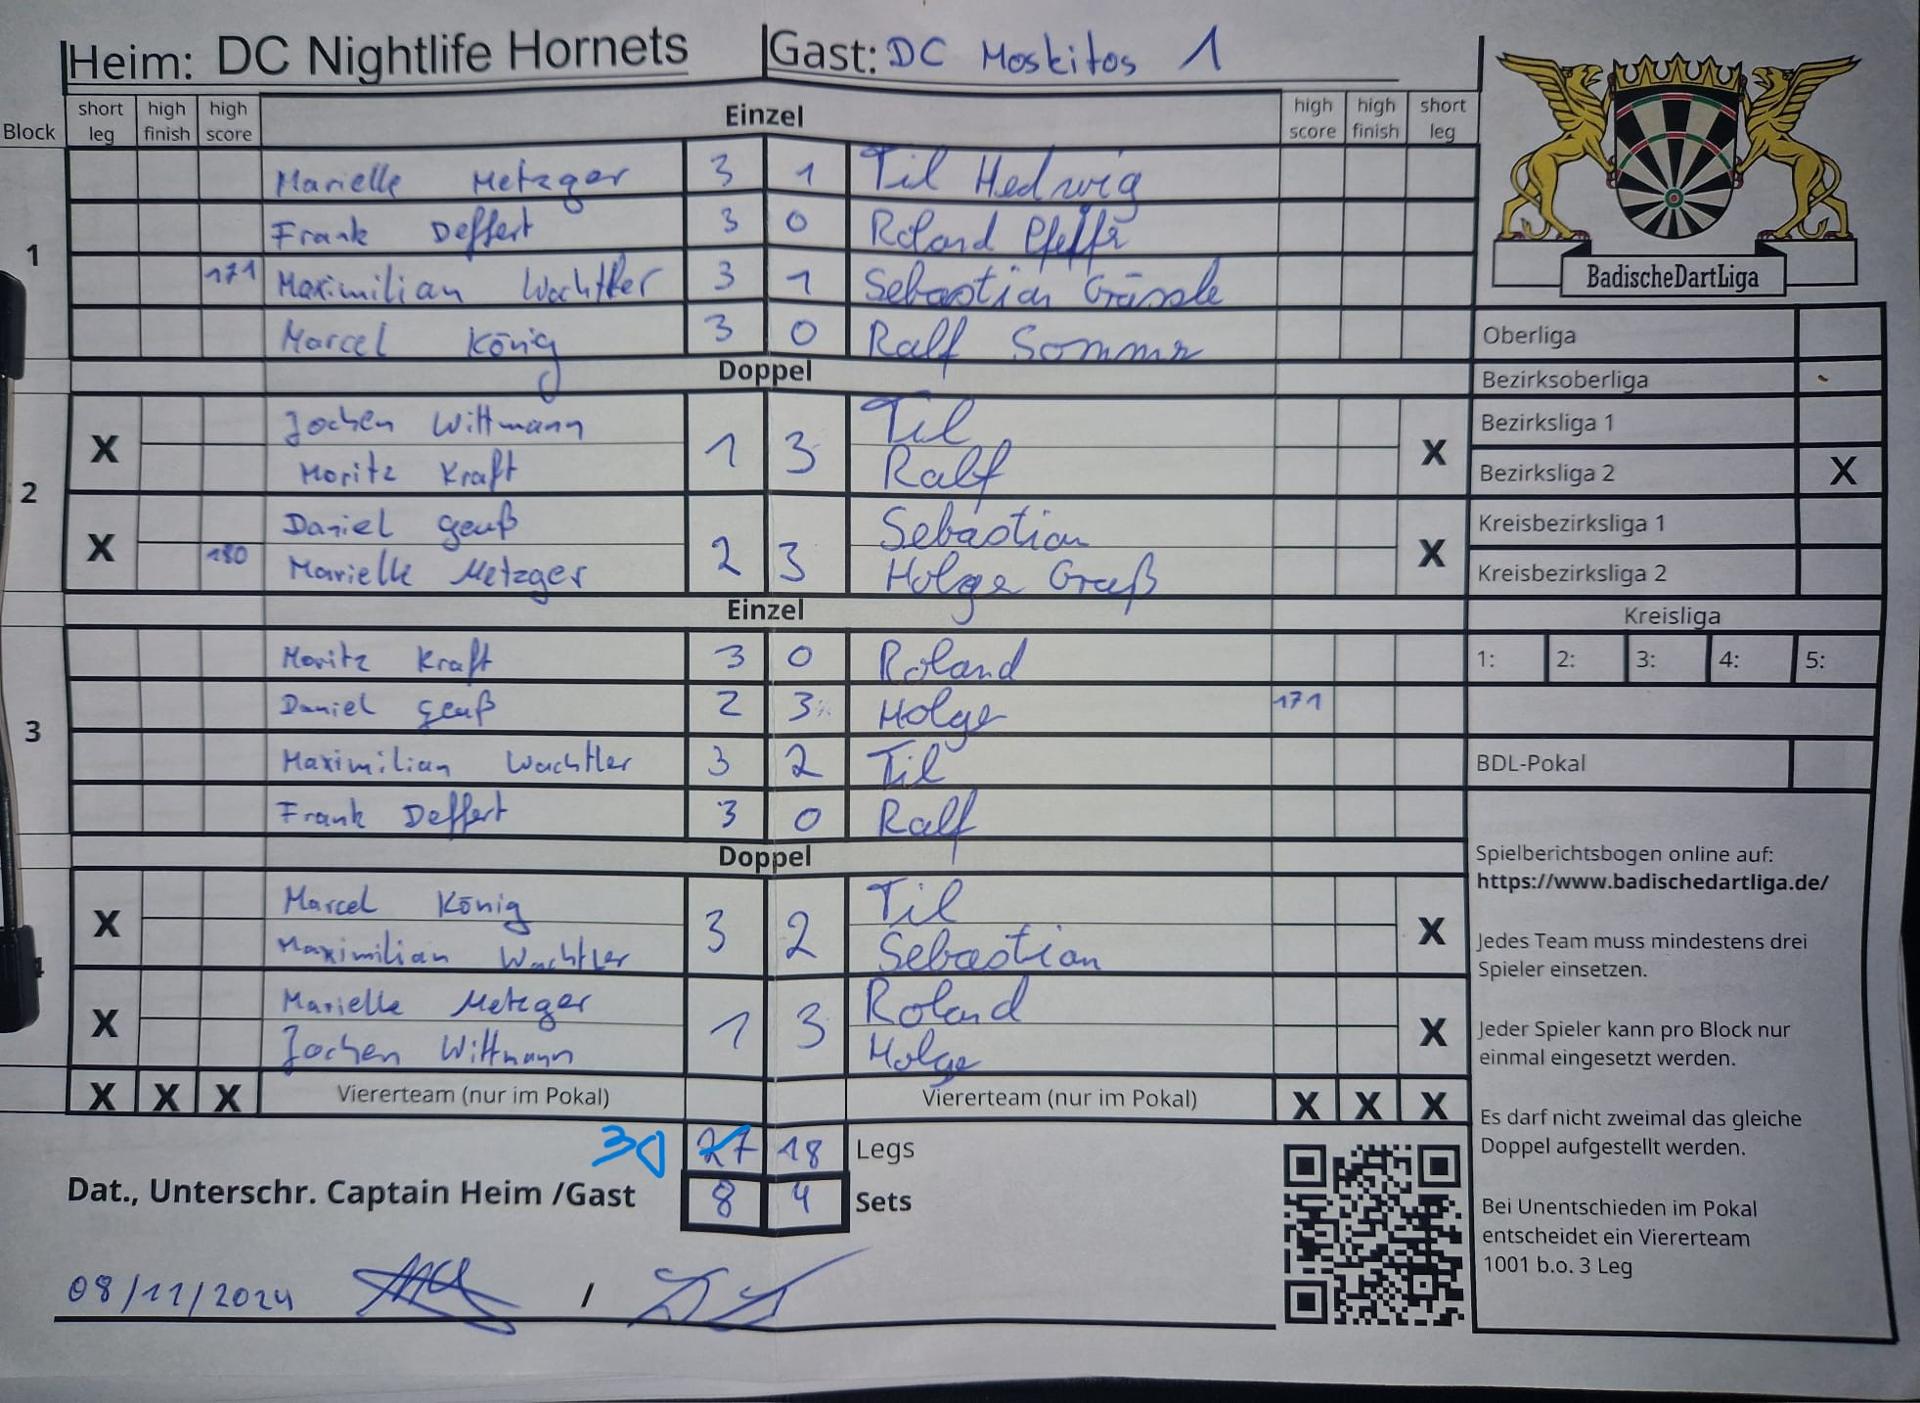 Heim: DC Nightlife Hornets Gast: DC Moskitos 1
Block short leg high finish high score Einzel high score high finish short leg
1
Marielle Metzger 3 1 Til Hedwig
Frank Deffert 3 0 Roland
171 Maximilian Wachtler 3 1 Sebastian
Marcel König 3 0 Ralf Sommer
Doppel
2
X Jochen Wittmann 1 3 Til X
Moritz Kraft Ralf
X Daniel Geuß 2 3 Sebastian X
180 Marielle Metzger Holger Graß
Einzel
3
Moritz Kraft 3 0 Roland
Daniel Geuß 2 3 Holger 171
Maximilian Wachtler 3 2 Til
Frank Deffert 3 0 Ralf
Doppel
X Marcel König 3 2 Til X
Maximilian Wachtler Sebastian
X Marielle Metzger 1 3 Roland X
Jochen Wittmann Holger
X X X Viererteam (nur im Pokal) Viererteam (nur im Pokal) X X X
30 27 18 Legs
Dat., Unterschr. Captain Heim /Gast 8 4 Sets
08/11/2024 /
BadischeDartLiga
Oberliga
Bezirksoberliga
Bezirksliga 1
Bezirksliga 2 X
Kreisbezirksliga 1
Kreisbezirksliga 2
Kreisliga
1: 2: 3: 4: 5:
BDL-Pokal
Spielberichtsbogen online auf:
https://www.badischedartliga.de/
Jedes Team muss mindestens drei
Spieler einsetzen.
Jeder Spieler kann pro Block nur
einmal eingesetzt werden.
Es darf nicht zweimal das gleiche
Doppel aufgestellt werden.
Bei Unentschieden im Pokal
entscheidet ein Viererteam
1001 b.o. 3 Leg